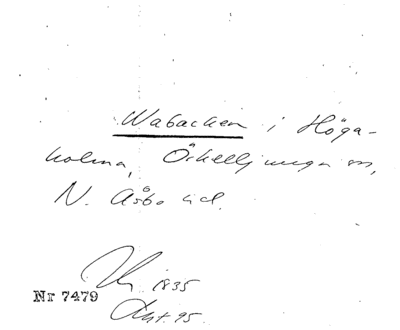 Wabacken i Höga-
holma, Örkelljunga sn,
N. Åsbo hd.
1835
Nr 7479
Akt. 95.